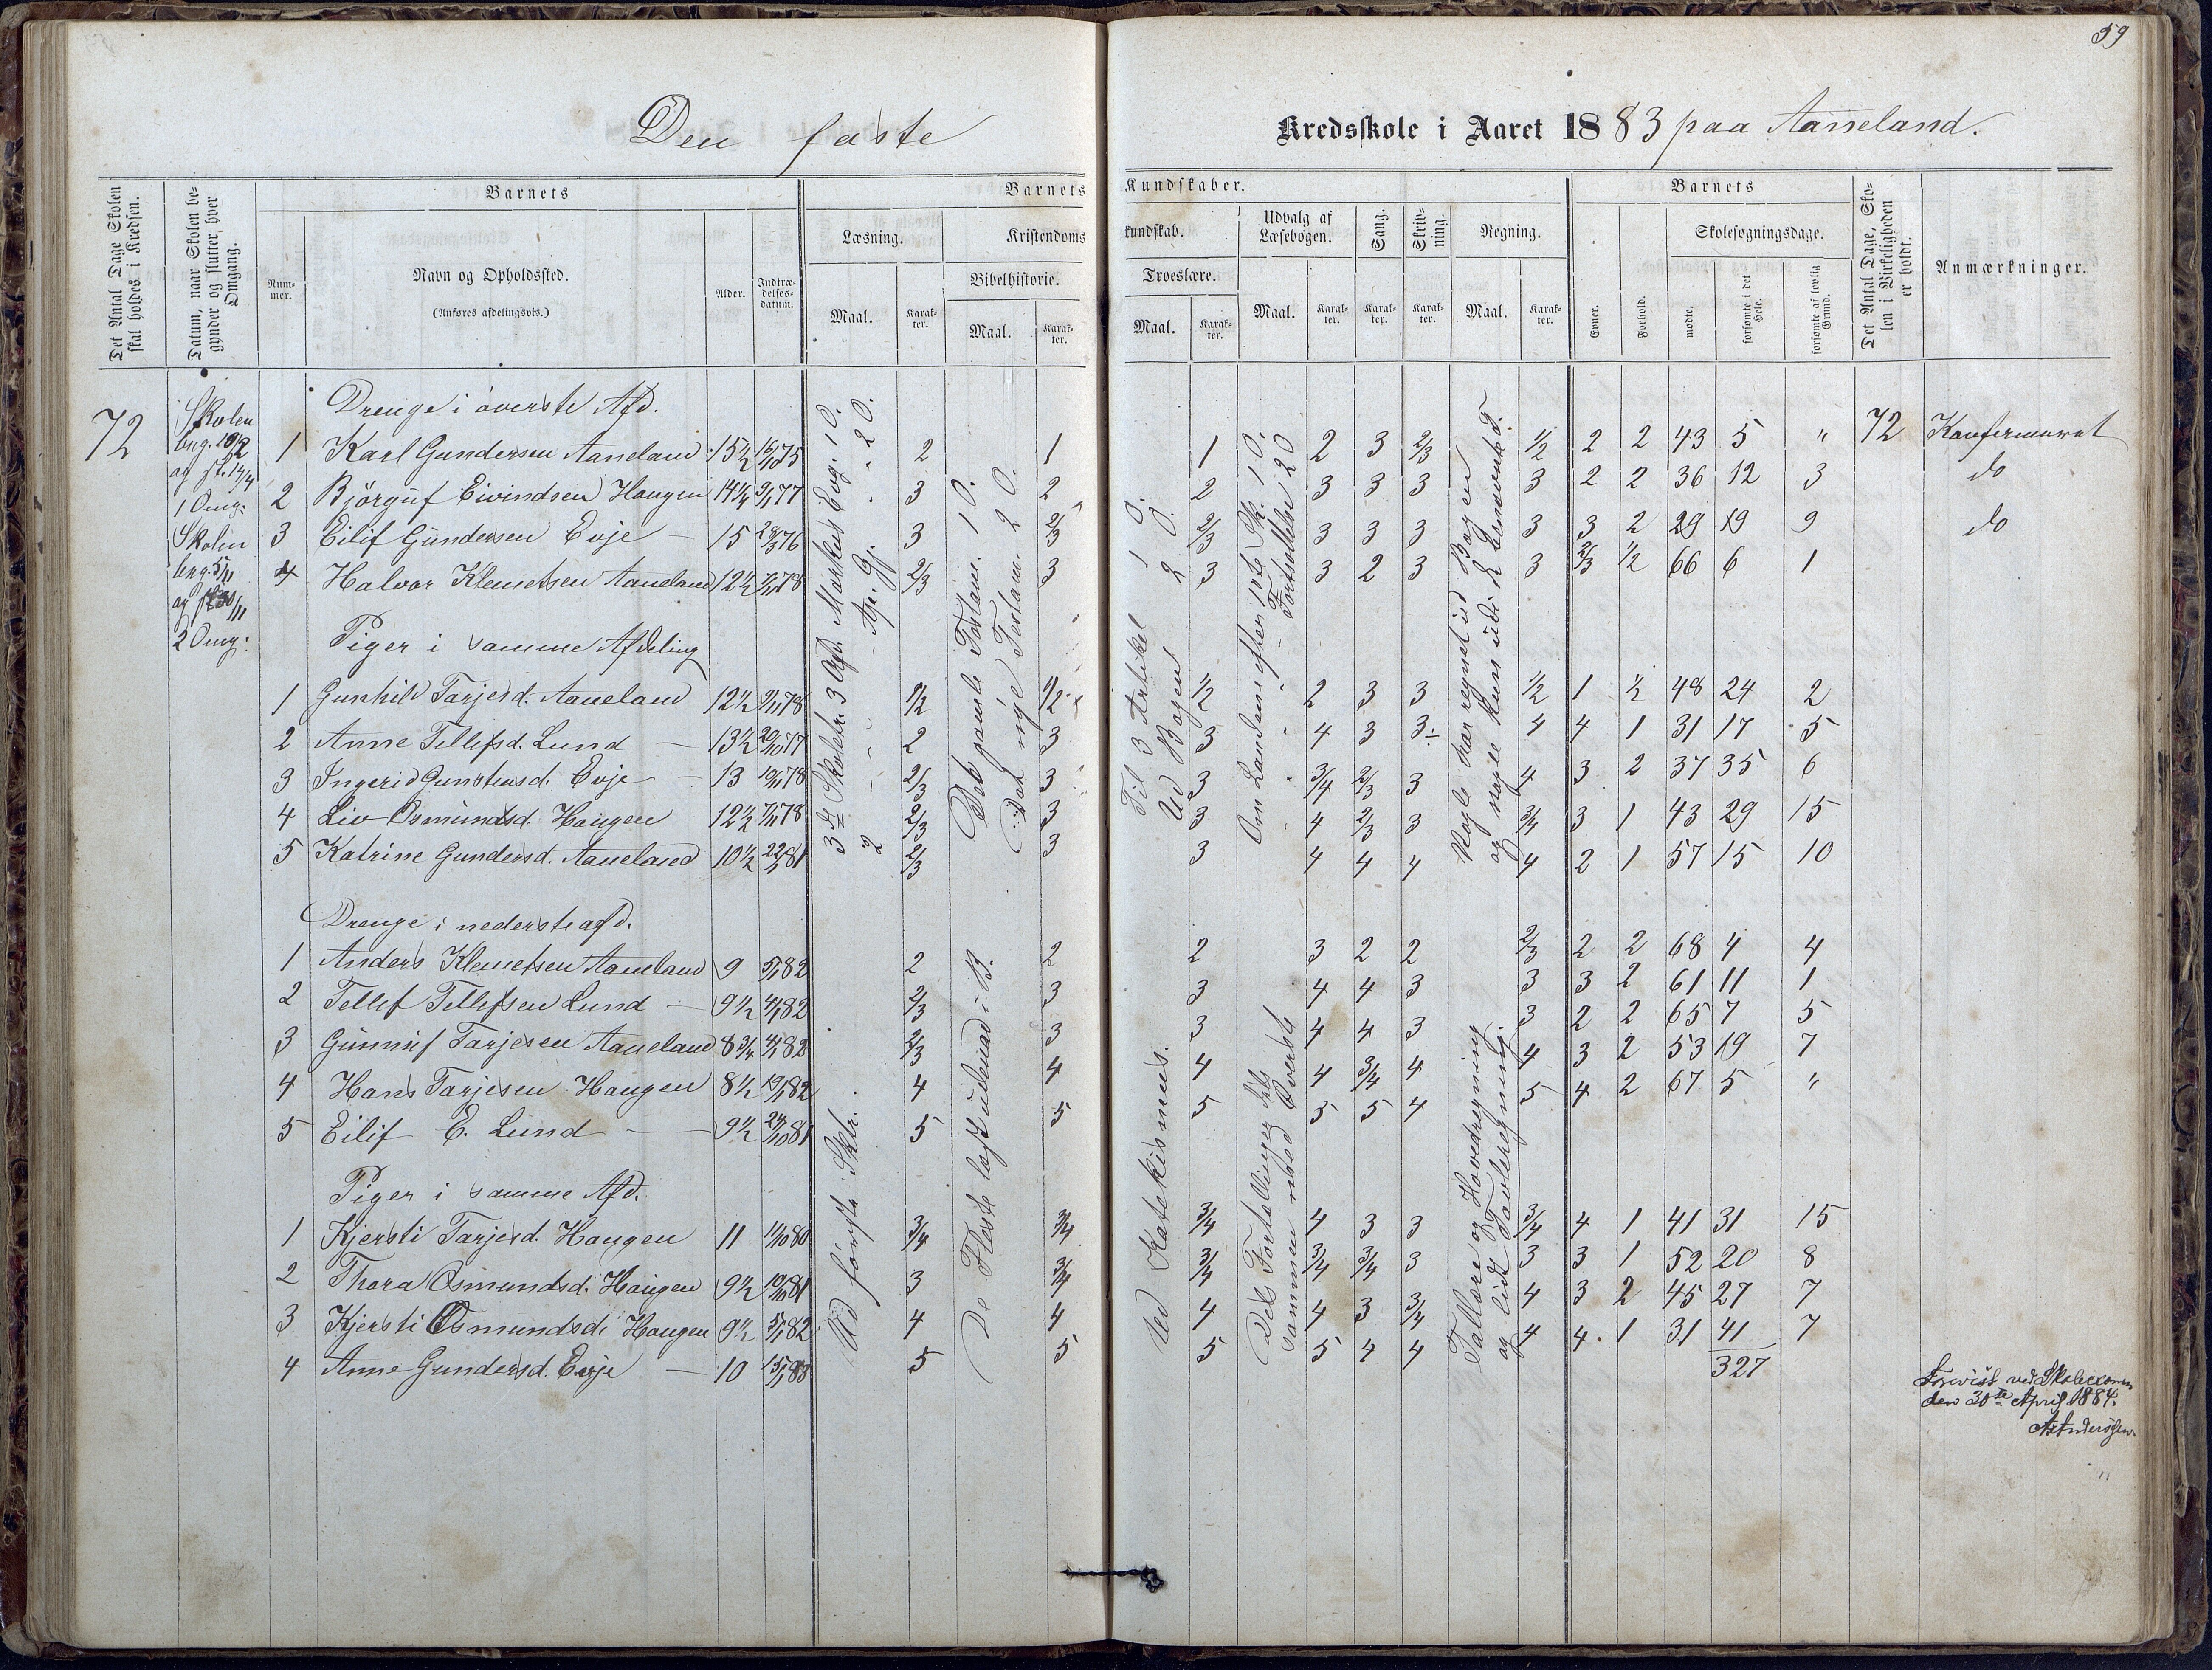 59
Den faste Kredsskole i Aaret 1883 paa Aaneland.
Det Antal Dage Skolen skal holdes i Kredsen.
Datum, naar Skolen begynder og slutter, hver Omgang.
Barnets
Nummer.
Navn og Opholdssted.
(Anføres afdelingsvis.)
Alder.
Indtrædelsesdatum.
Barnets Kundskaber.
Læsning.
Maal.
Karakter.
Kristendomskundskab.
Bibelhistorie.
Maal.
Karakter.
Troeslære.
Maal.
Karakter.
Udvalg af Læsebogen.
Maal.
Karakter.
Sang.
Karakter.
Skrivning.
Karakter.
Regning.
Maal.
Karakter.
Barnets
Evner.
Forhold.
Skolesøgningsdage.
mødte.
forsømte i det Hele.
forsømte af lovlig Grund.
Det Antal Dage, Skolen i Virkeligheden er holdt.
Anmærkninger.
72
Skolen
beg. 19/2
og sl. 14/4
1 Omg:
Skolen
beg. 5/11
2 Omg:
Drenge i øverste Afd.
1 Karl Gundersen Aaneland 15½ 2 1 1 2 3 2/3 ½ 2 2 43 5 " 72 Konfirmeret
2 Bjørguf Eivindsen Haugen 14¼ 3 2 2 3 3 3 3 2 2 36 12 3 do
3 Eilif Gundersen Evje — 15 3 2/3 2/3 3 3 3 3 3 2 29 19 9 do
4 Halvor Klemetsen Aaneland 12½ 2/3 3 3 3 2 3 3 2/3 ½ 66 6 1
Piger i samme Afdeling
1 Gunhild Tarjesd. Aaneland 12½ 9/11 78 ½ ½ ½ 2 3 3 ½ 1 ½ 48 24 2
2 Anne Tellefsd. Lund — 13½ 20/10 77 2 3 3 4 3 3÷ 4 4 1 31 17 5
3 Ingerid Gunstensd. Evje — 13 2/3 3 3 3/4 2/3 3 4 3 2 37 35 6
4 Liv Osmundsd. Haugen 12½ 7/11 78 2/3 3 3 4 2/3 3 3/4 3 1 43 29 15
5 Katrine Gundersd. Aaneland 10½ 2/3 3 3 4 4 4 4 2 1 57 15 10
Drenge i nederste afd.
1 Anders Klemetsen Aaneland 9 5/1 82 2 2 2 3 2 2 2/3 2 2 68 4 4
2 Tellef Tellefsen Lund — 9½ 4/1 82 2/3 3 3 4 4 3 3 3 2 61 11 1
3 Gunnuf Tarjesen Aaneland 8¾ 4/1 82 2/3 3 3 4 4 3 3 2 2 65 7 5
4 Hans Tarjesen Haugen 8½ 19/1 82 4 4 4 4 3/4 4 4 3 2 53 19 7
5 Eilif E. Lund — — 9½ 24/10 81 5 5 5 5 5 4 5 4 2 67 5 "
Piger i samme Afd.
1 Kjersti Tarjesd. Haugen 11 11/10 80 3/4 3/4 3/4 4 3 3 3/4 4 1 41 31 15
2 Thora Osmundsd. Haugen 9½ 10/10 81 3 3/4 3/4 3/4 3/4 3 3 3 1 52 20 8
3 Kjersti Osmundsd. Haugen 9½ 5/1 82 4 4 4 4 3 3/4 4 3 2 45 27 7
4 Anne Gundersd. Evje — 10 15/1 83 5 5 5 5 4 4 4 4 1 31 41 7
327
3die Skoletr. 3 Afd. Markus Evg. 1 O.
2 — — — Ap. Gj. — 2 O.
Det gamle Testam. 1 O.
Det nye Testam. 2 O.
Til 3 Artikel 1 O.
Ud Bogen 2 O.
Om Landene efter 1ste Sk. 1 O.
Fortsættelse 2 O
Nogle har regnet ud Bogen
Ud første Sktr.
De Fleste læst udenad i B.
Ud Katekismus.
Dels Fortællinger dels
sammen med Øverste
Tallære og Hovedregning
og lidt Tavleregning.
Forevist ved Skoleexamen
den 30te April 1884.